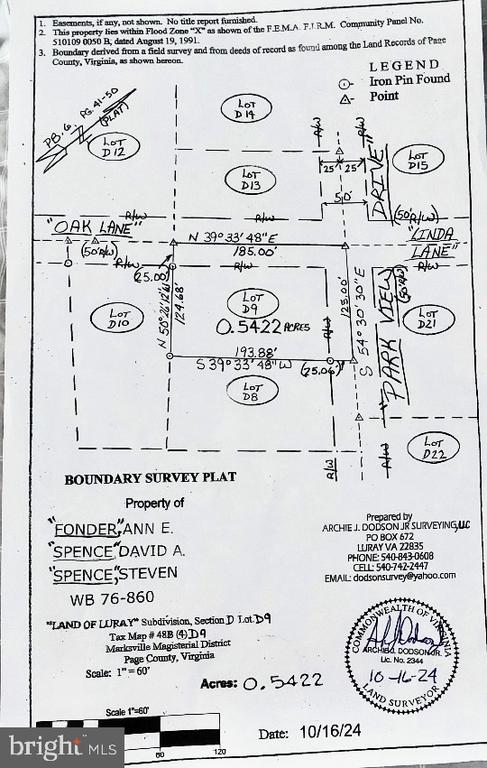 1. Easements, if any, not shown. No title report furnished.
2. This property lies within Flood Zone "X" as shown of the F.E.M.A. F.I.R.M. Community Panel No.
510109 0050 B, dated August 19, 1991.
3. Boundary derived from a field survey and from deeds of record as found among the Land Records of Page
County, Virginia, as shown hereon.
LEGEND
Iron Pin Found
Point
PB. 6 PG. 41-50
(PLAT)
LOT D12
LOT D14
LOT D13
LOT D15
R/W
R/W
25' 25'
50'
DRIVE"
(50'R/W)
R/W
R/W
"OAK LANE"
"LINDA
LANE"
N 39° 33' 48" E
185.00'
(50'R/W)
R/W
(25.00')
R/W
R/W
LOT D10
N 50° 26' 12" W
124.68'
LOT D9
0.5422 ACRES
R/W
125.00'
S 54° 30' 30" E
"PARK VIEW
(50'R/W)
LOT D21
193.88'
S 39° 33' 48" W
(25.06')
LOT D8
LOT D22
R/W
R/W
BOUNDARY SURVEY PLAT
Property of
"FONDER," ANN E.
"SPENCE," DAVID A.
"SPENCE," STEVEN
WB 76-860
Prepared by
ARCHIE J. DODSON JR SURVEYING, LLC
PO BOX 672
LURAY VA 22835
PHONE: 540-843-0608
CELL: 540-742-2447
EMAIL: dodsonsurvey@yahoo.com
"LAND OF LURAY" Subdivision, Section D Lot D9
Tax Map # 48B (4) D9
Marksville Magisterial District
Page County, Virginia
Scale: 1" = 60'
Acres: 0.5422
COMMONWEALTH OF VIRGINIA
ARCHIE J. DODSON JR.
Lic. No. 2344
10-16-24
LAND SURVEYOR
Scale 1"=60'
60 120
Date: 10/16/24
bright MLS